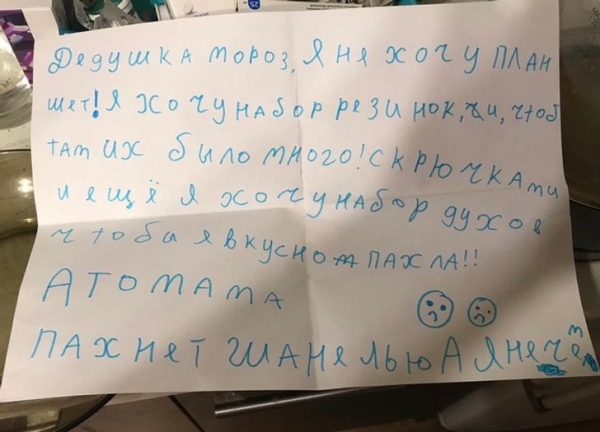 Дедушка мороз, я не хочу план
шет! Я хочу набор резинок, и, чтоб
там их было много! с крючками
и ещё я хочу набор духов
чтобы я вкусно пахла!!
А то мама
пахнет шанелью а я нечем